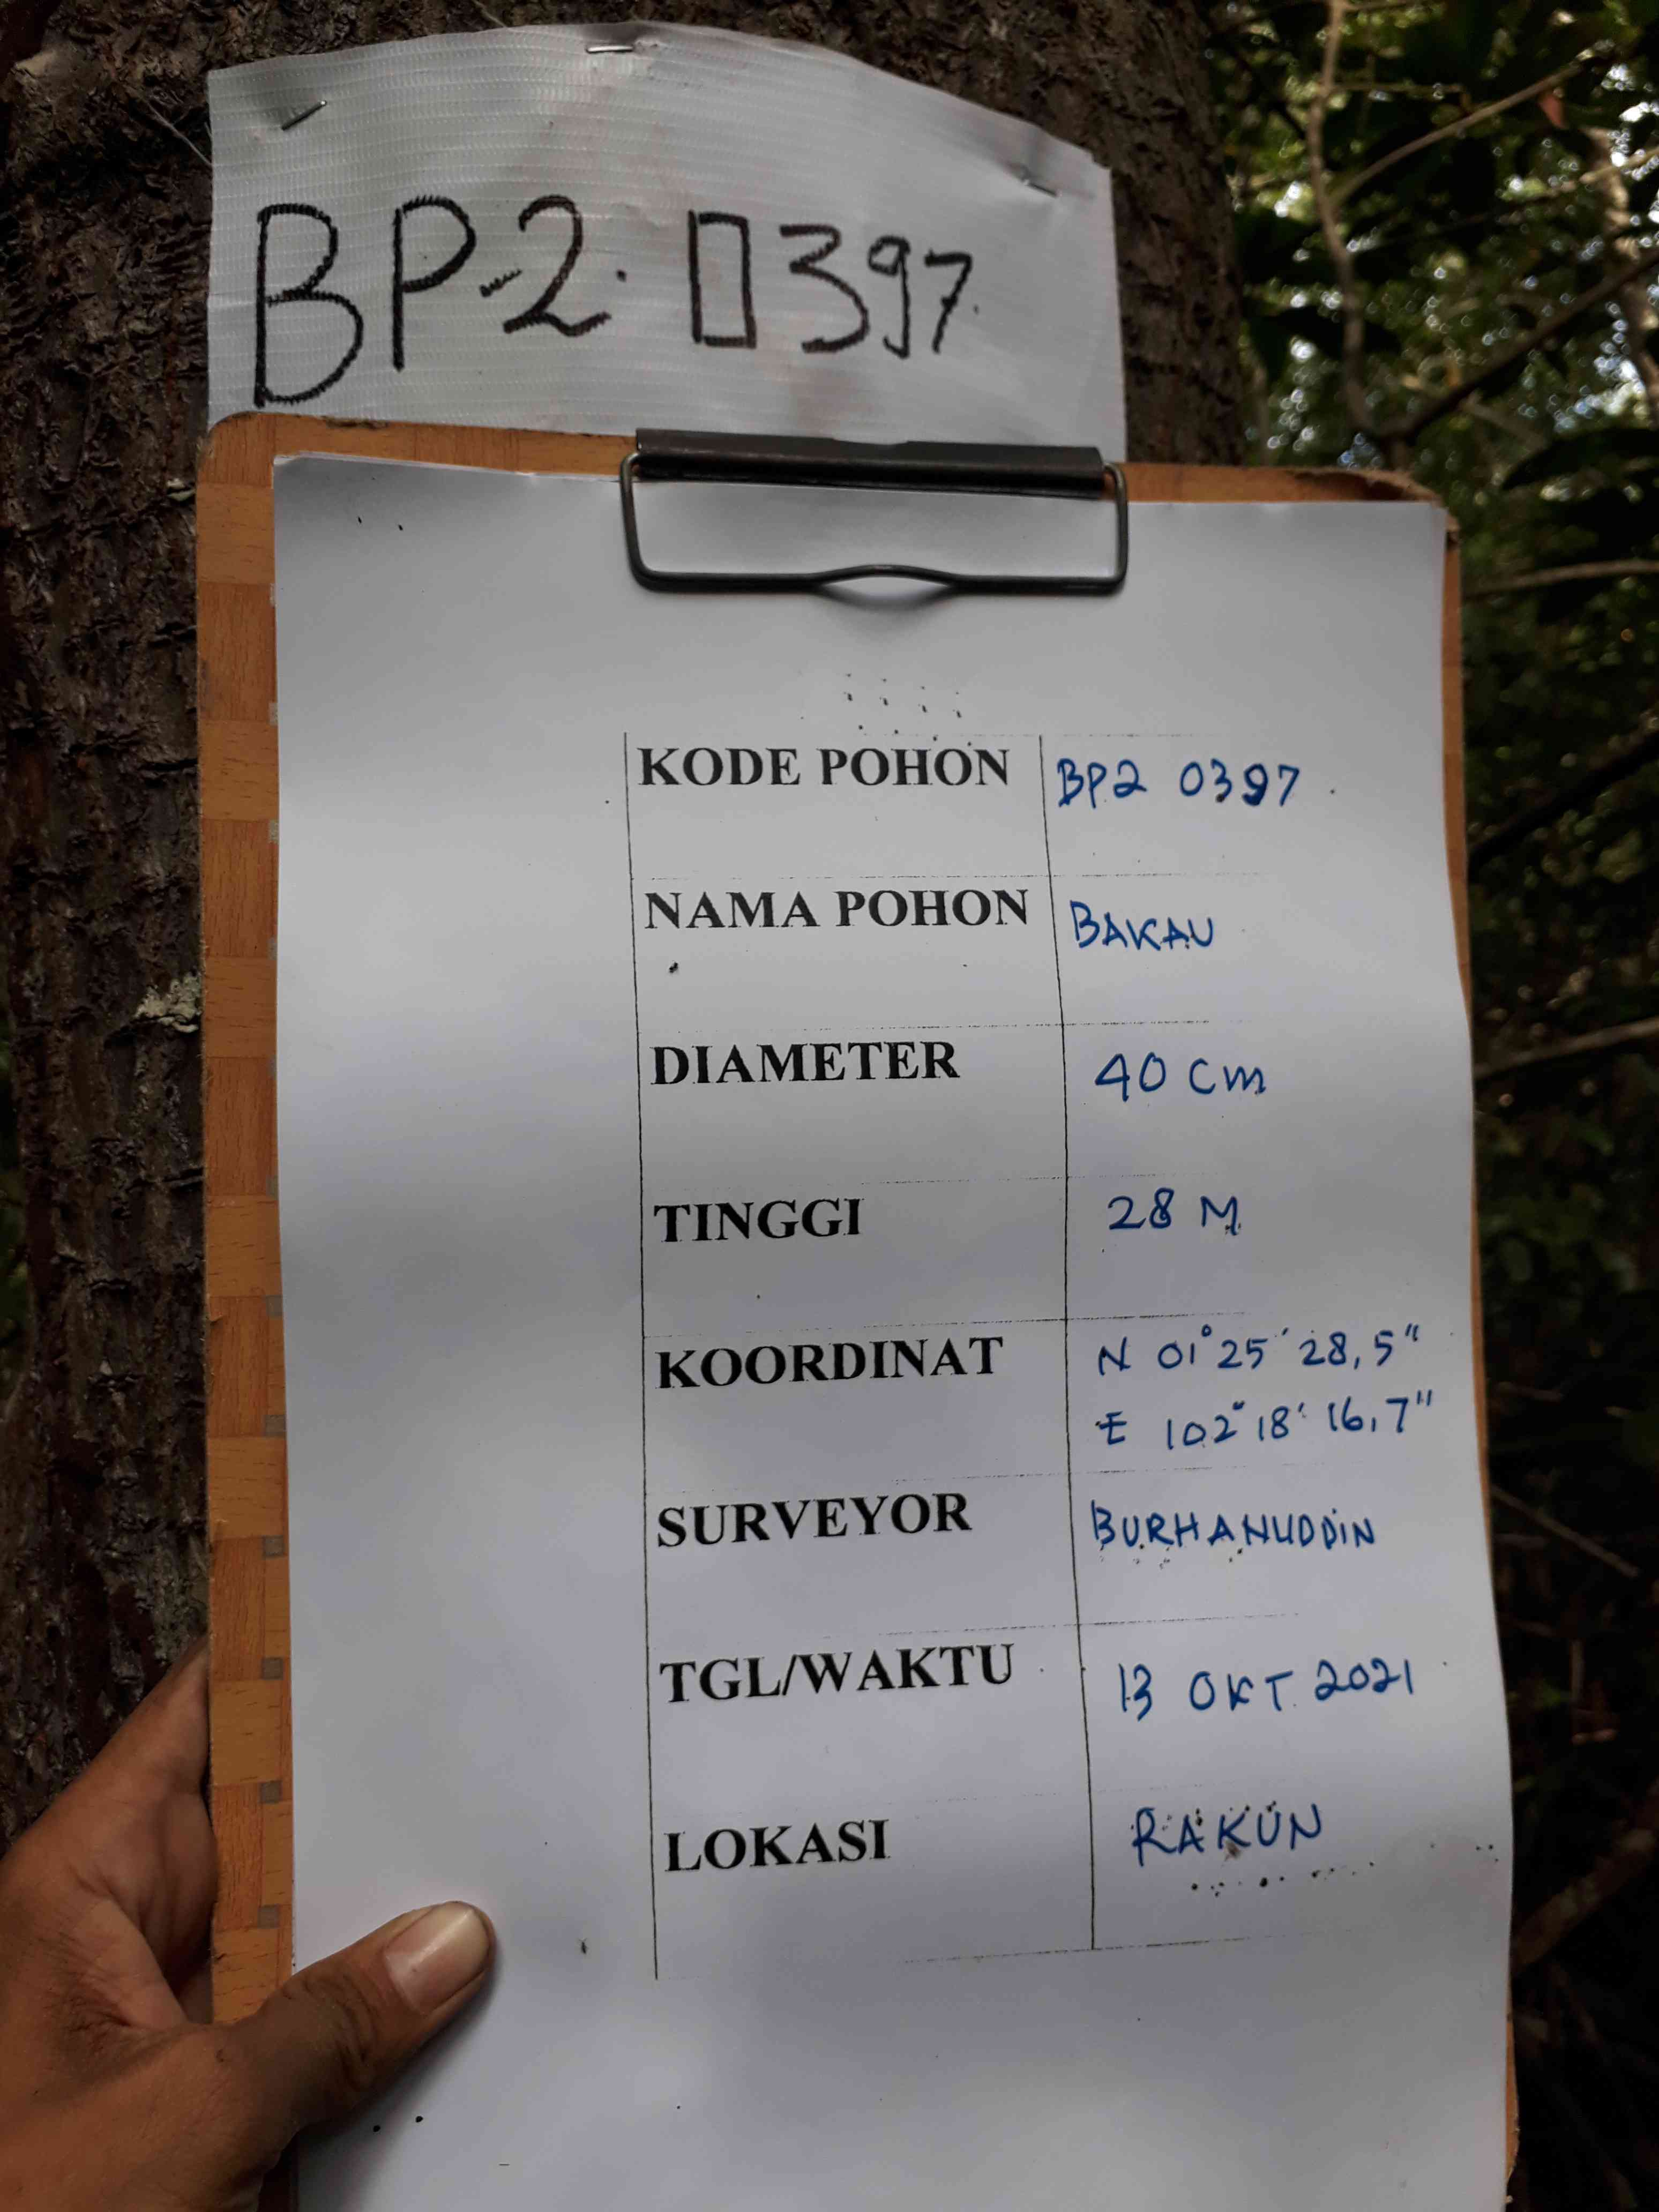 BP-2. 0397.
KODE POHON BP2 0397
NAMA POHON BAKAU
DIAMETER 40 Cm
TINGGI 28 M
KOORDINAT N 01° 25' 28,5"
E 102° 18' 16,7"
SURVEYOR BURHANUDDiN
TGL/WAKTU 13 OKT 2021
LOKASI RAKUN